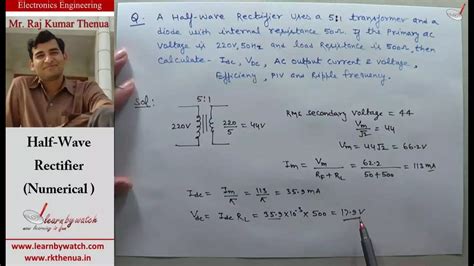 Electronics Engineering
Mr. Raj Kumar Thenua
Half-Wave
Rectifier
(Numerical)
learnbywatch
www.learnbywatch.com
www.rkthenua.in
Q. A Half-wave Rectifier uses a 5:1 transformer and a
diode with internal resistance 50Ω. If the Primary ac
Voltage is 220V, 50Hz and Load Resistance is 500Ω, then
Calculate - Idc, Vdc, AC Output Current & Voltage,
Efficiency, PIV and Ripple frequency.
Sol:
5:1
220V
220/5 = 44V
Rms secondary voltage = 44
Vm/√2 = 44
Vm = 44√2 = 62.2V
Im = Vm/(RF+RL) = 62.2/(50+500) = 113mA
Idc = Im/π = 113/π = 35.9mA
Vdc = Idc RL = 35.9×10⁻³ × 500 = 17.9V